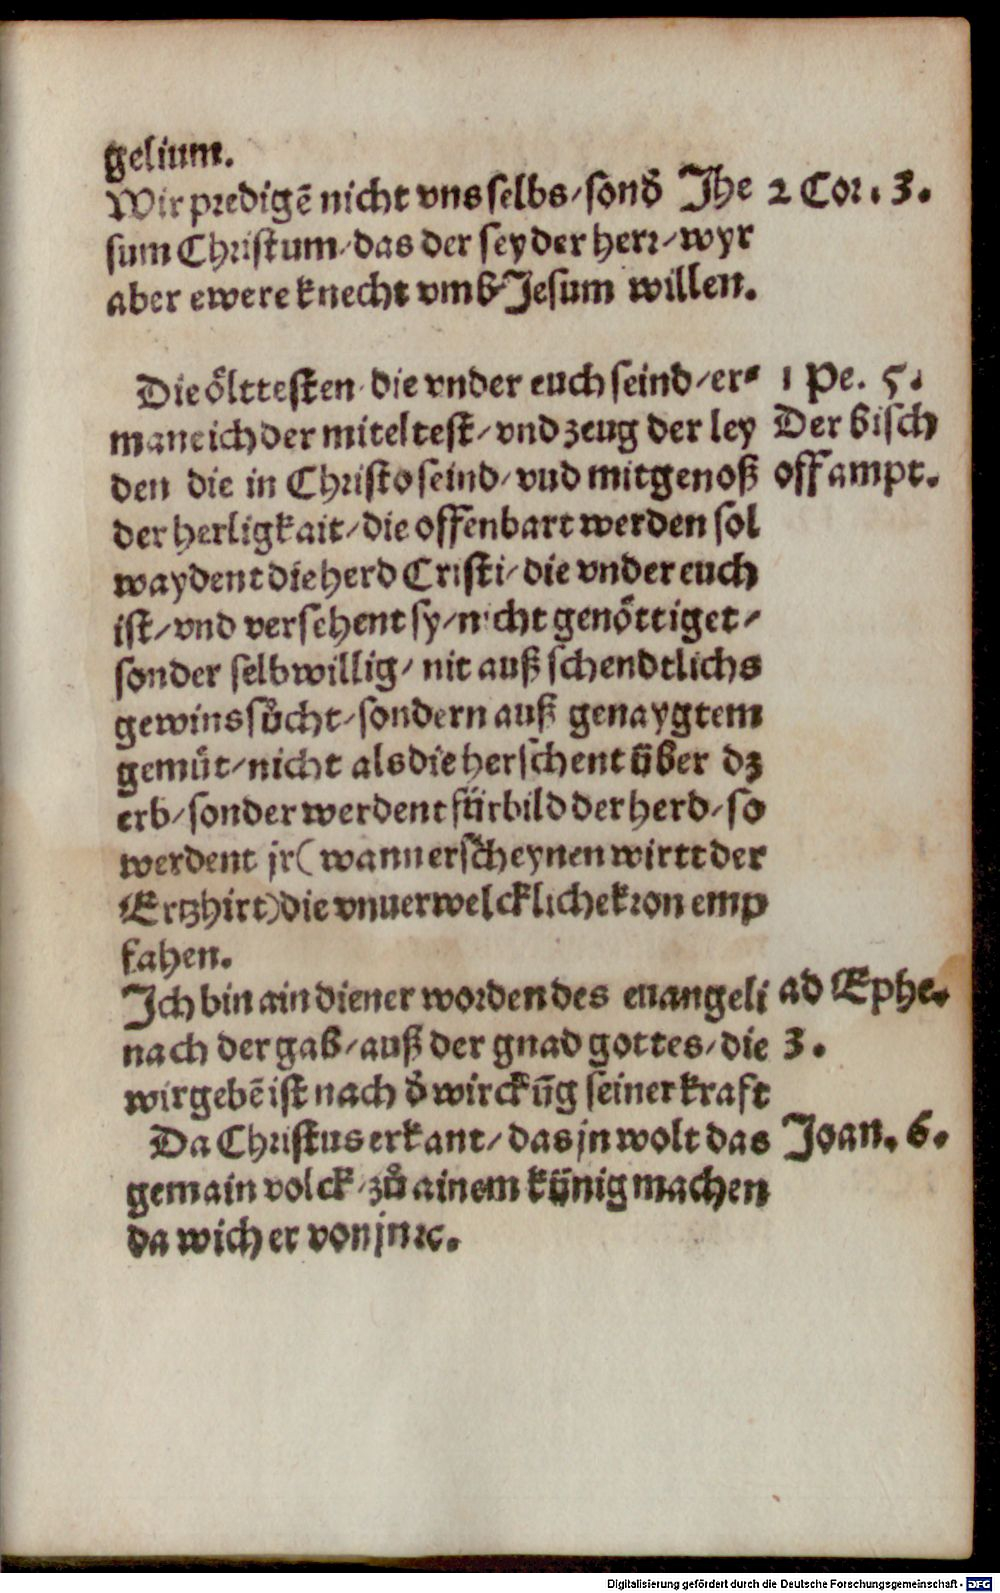 gelium.
Wir predigẽ nicht vns selbs/sond̕ Jhe
2 Cor. 3.
sum Christum/das der sey der herr/wyr
aber ewere knecht vmb Jesum willen.
Die ölttesten/die vnder euch seind/er⸗
1 Pe. 5.
mane ich der miteltest/vnd zeug der ley
Der bisch
den die in Christo seind/vnd mitgenoß
offampt.
der herligkait/die offenbart werden sol
waydent die herd Cristi/die vnder euch
ist/vnd versehent sy/nicht genöttiget/
sonder selbwillig/nit auß schendtlichs
gewins sůcht/sondern auß genaygtem
gemüt/nicht als die herschent über dz
erb/sonder werdent fürbild der herd/so
werdent jr(wann erscheynen wirtt der
Ertzhirt)die vnuerwelcklichekron emp
fahen.
Ich bin ain diener worden des euangeli
ad Ephe.
nach der gab/auß der gnad gottes/die
3.
wir gebẽ ist nach d̕ wirckũg seiner kraft
Da Christus erkant/das jn wolt das
Joan. 6.
gemain volck/zů ainem künig machen
da wich er von jn ꝛc.
Digitalisierung gefördert durch die Deutsche Forschungsgemeinschaft - DFG